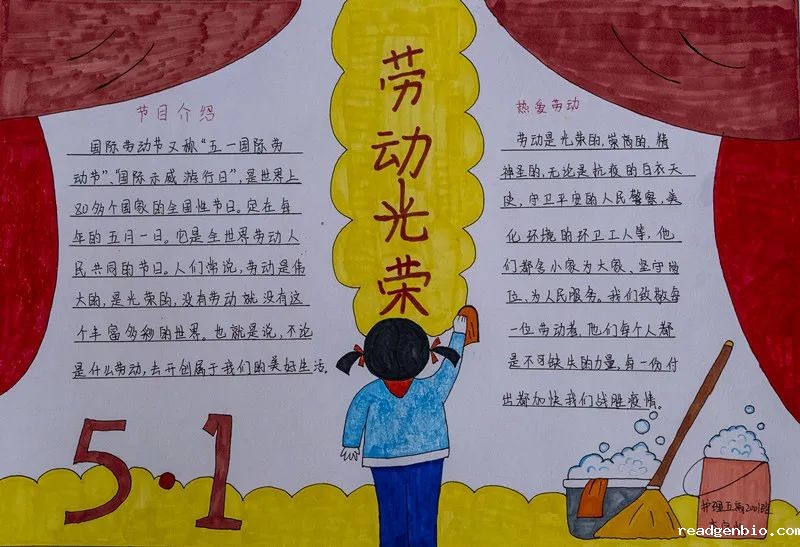 劳动光荣
节目介绍
国际劳动节又称“五一国际劳
动节”、“国际示威游行日”,是世界上
80多个国家的全国性节日。定在每
年的五月一日。它是全世界劳动人
民共同的节日。人们常说,劳动是伟
大的,是光荣的,没有劳动就没有这
个丰富多彩的世界。也就是说,不论
是什么劳动,去开创属于我们的美好生活。
热爱劳动
劳动是光荣的,崇高的,精
神圣的,无论是抗疫的白衣天
使,守卫平安的人民警察,美
化环境的环卫工人等,他
们都舍小家为大家、坚守岗
位、为人民服务。我们致敬每
一位劳动者,他们每个人都
是不可缺失的力量,每一份付
出都加快我们战胜疫情。
5·1
护理五年2001班
readgenbio.com